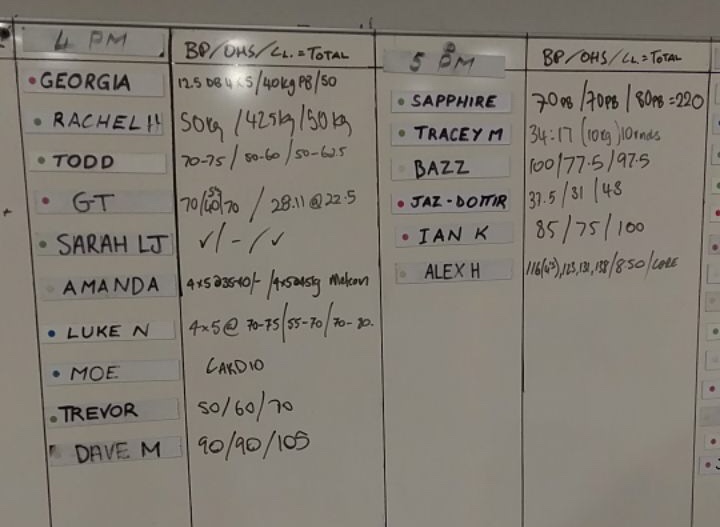 4 PM
BP/OHS/CL. = TOTAL
GEORGIA
12.5 DB 4 x 5/40kg PB/50
RACHEL H
50kg /42.5kg/50kg
TODD
70-75 / 50-60 / 50-62.5
GT
70 / 28.11 @ 22.5
SARAH LJ
✓/-/✓
AMANDA
4x5@35-40/- /4x5@45kg Metcon
LUKE N
4x5@ 70-75/55-70/70-80.
MOE
CARDIO
TREVOR
50/60/70
DAVE M
90/90/105
5 PM
BP/OHS/CL. = TOTAL
SAPPHIRE
70PB /70PB / 80PB =220
TRACEY M
34:17 (10kg) 10rnds
BAZZ
100/77.5/97.5
JAZ-DOTTIR
37.5/31/48
IAN K
85/75/100
ALEX H
123,131,138/8.50/CORE